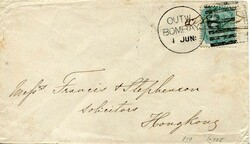 OUTW
BOMBAY
1 JUN
Messrs Francis & Stephenson
Solicitors
Hongkong